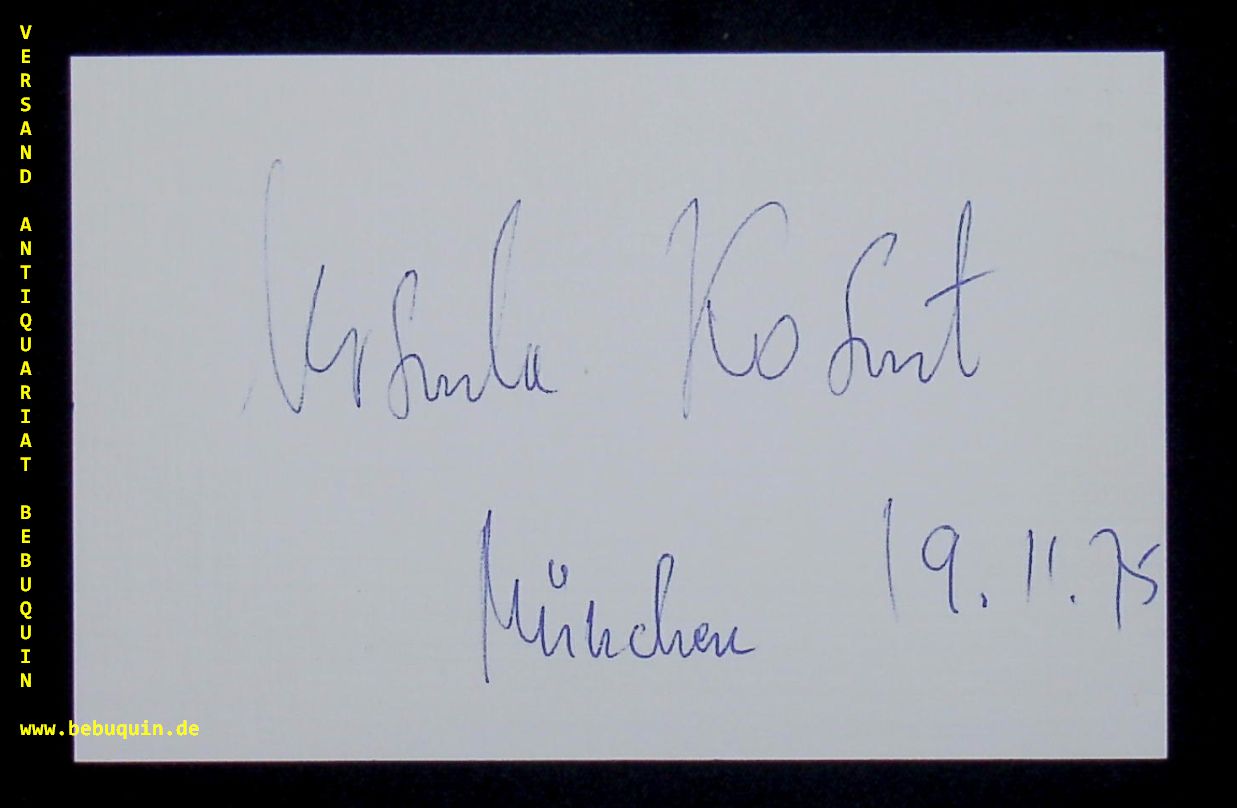 VERSAND ANTIQUARIAT BEBUQUIN
Ursula Kosut
München 19.11.75
www.bebuquin.de